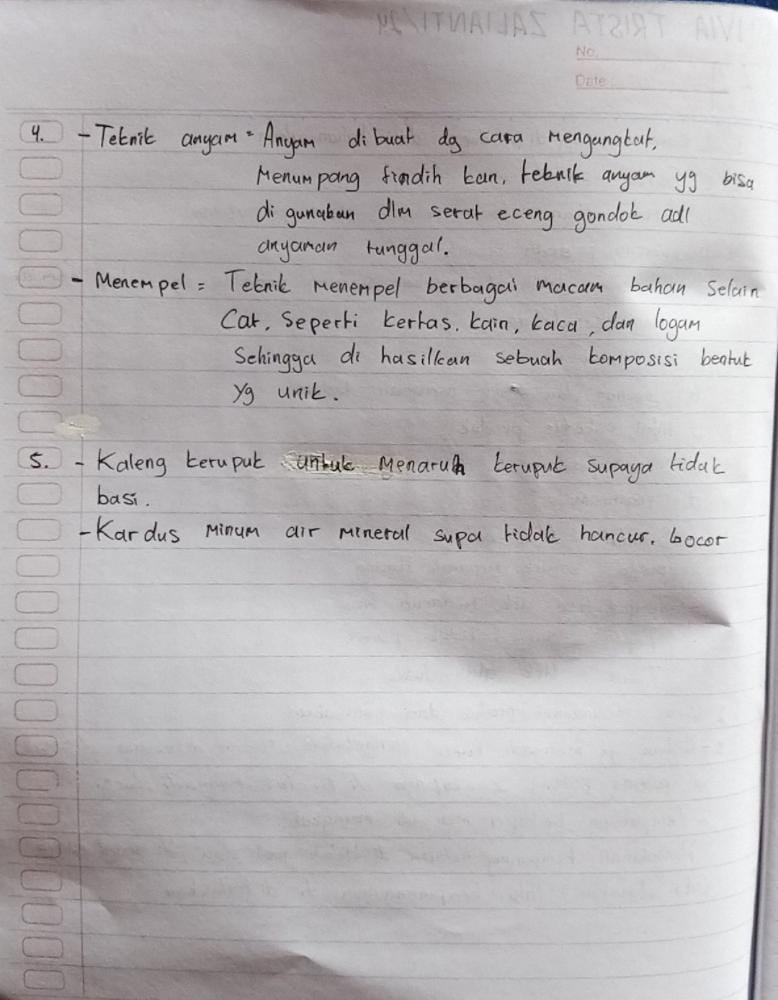 No.
Date
4. - Teknik anyam = Anyam di buat dg cara mengangkat,
Menumpang tindih kan, teknik anyam yg bisa
di gunakan dlm serat eceng gondok adl
anyaman tunggal.
- Menempel = Teknik menempel berbagai macam bahan selain
Cat, Seperti kertas, kain, kaca, dan logam
Sehingga di hasilkan sebuah komposisi bentuk
yg unik.
5. - Kaleng kerupuk untuk menaruh kerupuk supaya tidak
basi.
- Kardus minum air mineral supa tidak hancur, bocor